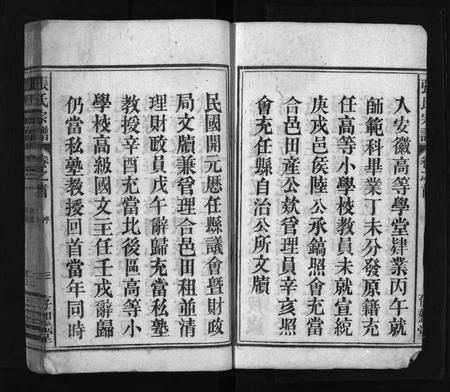 入安徽高等學堂肄業丙午就
師範科畢業丁未分發原籍充
任高等小學校教員未就宣統
庚戌邑侯陸公承鎬照會充當
合邑田產公欵管理員辛亥照
會充任縣自治公所文牘
民國開元懸任縣議會暨財政
局文牘兼管理合邑田租並清
理財政員戊午辭歸充當私塾
教授辛酉充當北後區高等小
學校高級國文主任壬戌辭歸
仍當私塾教授回首當年同時
張氏宗譜
卷之首
序
三